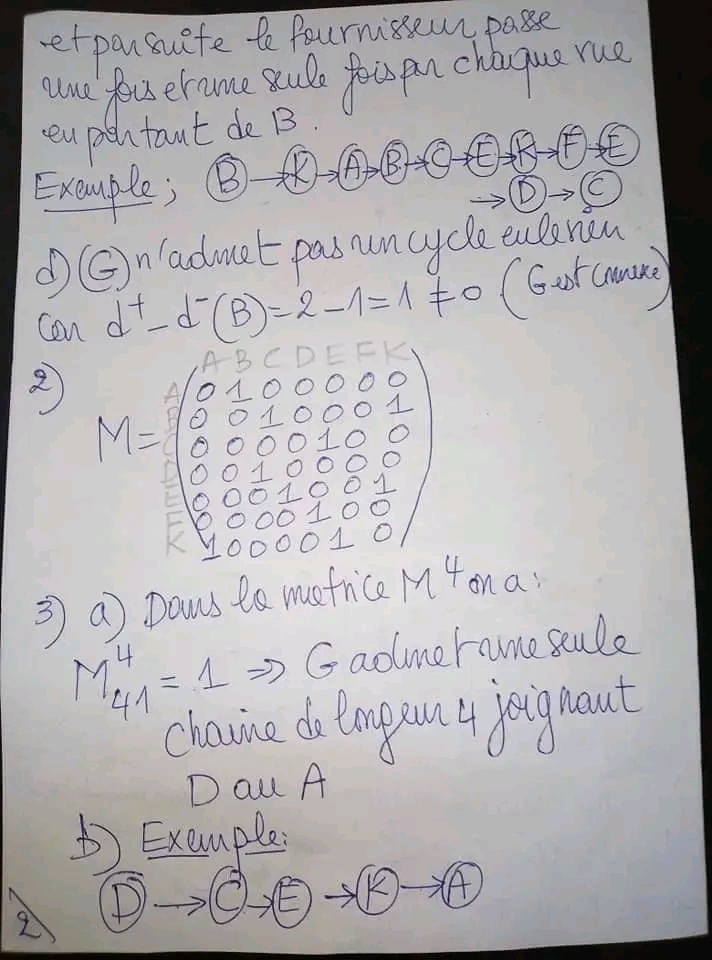 et par suite le fournisseur passe
une fois et une seule fois par chaque rue
en partant de B.
Exemple; B → K → A → B → C → E → K → F → E
→ D → C
d) (G) n'admet pas un cycle eulerien
car d⁺ - d⁻(B) = 2 - 1 = 1 ≠ 0 (G est connexe)
A B C D E F K
2)
M =
A 0 1 0 0 0 0 0
B 0 0 1 0 0 0 1
C 0 0 0 0 1 0 0
D 0 0 1 0 0 0 0
E 0 0 0 1 0 0 1
F 0 0 0 0 1 0 0
K 1 0 0 0 0 1 0
3) a) Dans la matrice M⁴ on a:
M⁴₄₁ = 1 ⇒ G admet une seule
chaine de longeur 4 joignant
D au A
b) Exemple:
D → C → E → K → A
2